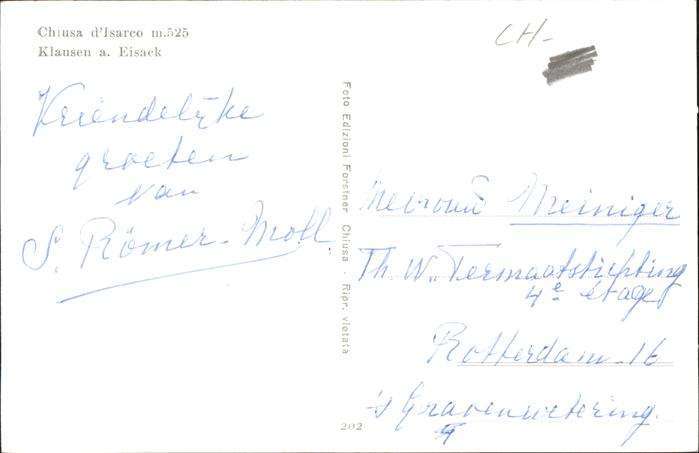 Chiusa d'Isarco m.525
Klausen a. Eisack
CH-
Vriendelijke
groeten
van
S. Römer-Moll
Foto Edizioni Forstner Chiusa - Ripr. vietata
202
Mevrouw Meiniger
Th. W. Termaatstichting
4e étage
Rotterdam-16
's Gravenwetering.